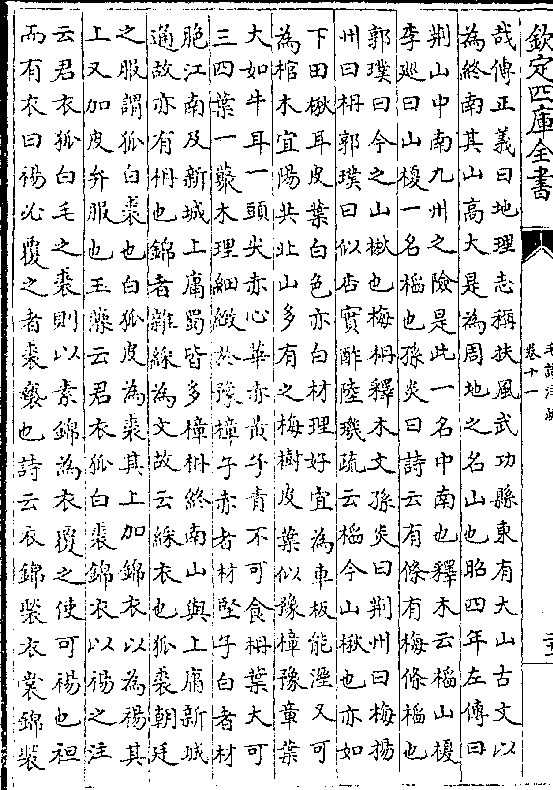 欽定四庫全書
毛詩注疏
卷十一
哉傳正義曰地理志稱扶風武功縣東有大山古文以
為終南其山高大是為周地之名山也昭四年左傳曰
荆山中南九州之險是此一名中南也釋木云槄山榎
李廵曰山榎一名槄也孫炎曰詩云有條有梅條槄也
郭璞曰今之山楸也梅柟釋木文孫炎曰荆州曰梅揚
州曰柟郭璞曰似杏實酢陸璣疏云槄今山楸也亦如
下田楸耳皮葉白色亦白材理好宜為車板能溼又可
為棺木宜陽共北山多有之梅樹皮葉似豫樟豫章葉
大如牛耳一頭尖赤心華赤黄子青不可食柟葉大可
三四葉一藂木理細緻於豫樟子赤者材堅子白者材
脆江南及新城上庸蜀皆多樟柟終南山與上庸新城
通故亦有柟也錦者雜綵為文故云綵衣也狐裘朝廷
之服謂狐白裘也白狐皮為裘其上加錦衣以為裼其
上又加皮弁服也玉藻云君衣狐白裘錦衣以裼之注
云君衣狐白毛之裘則以素錦為衣覆之使可裼也袒
而有衣曰裼必覆之者裘褻也詩云衣錦褧衣裳錦褧